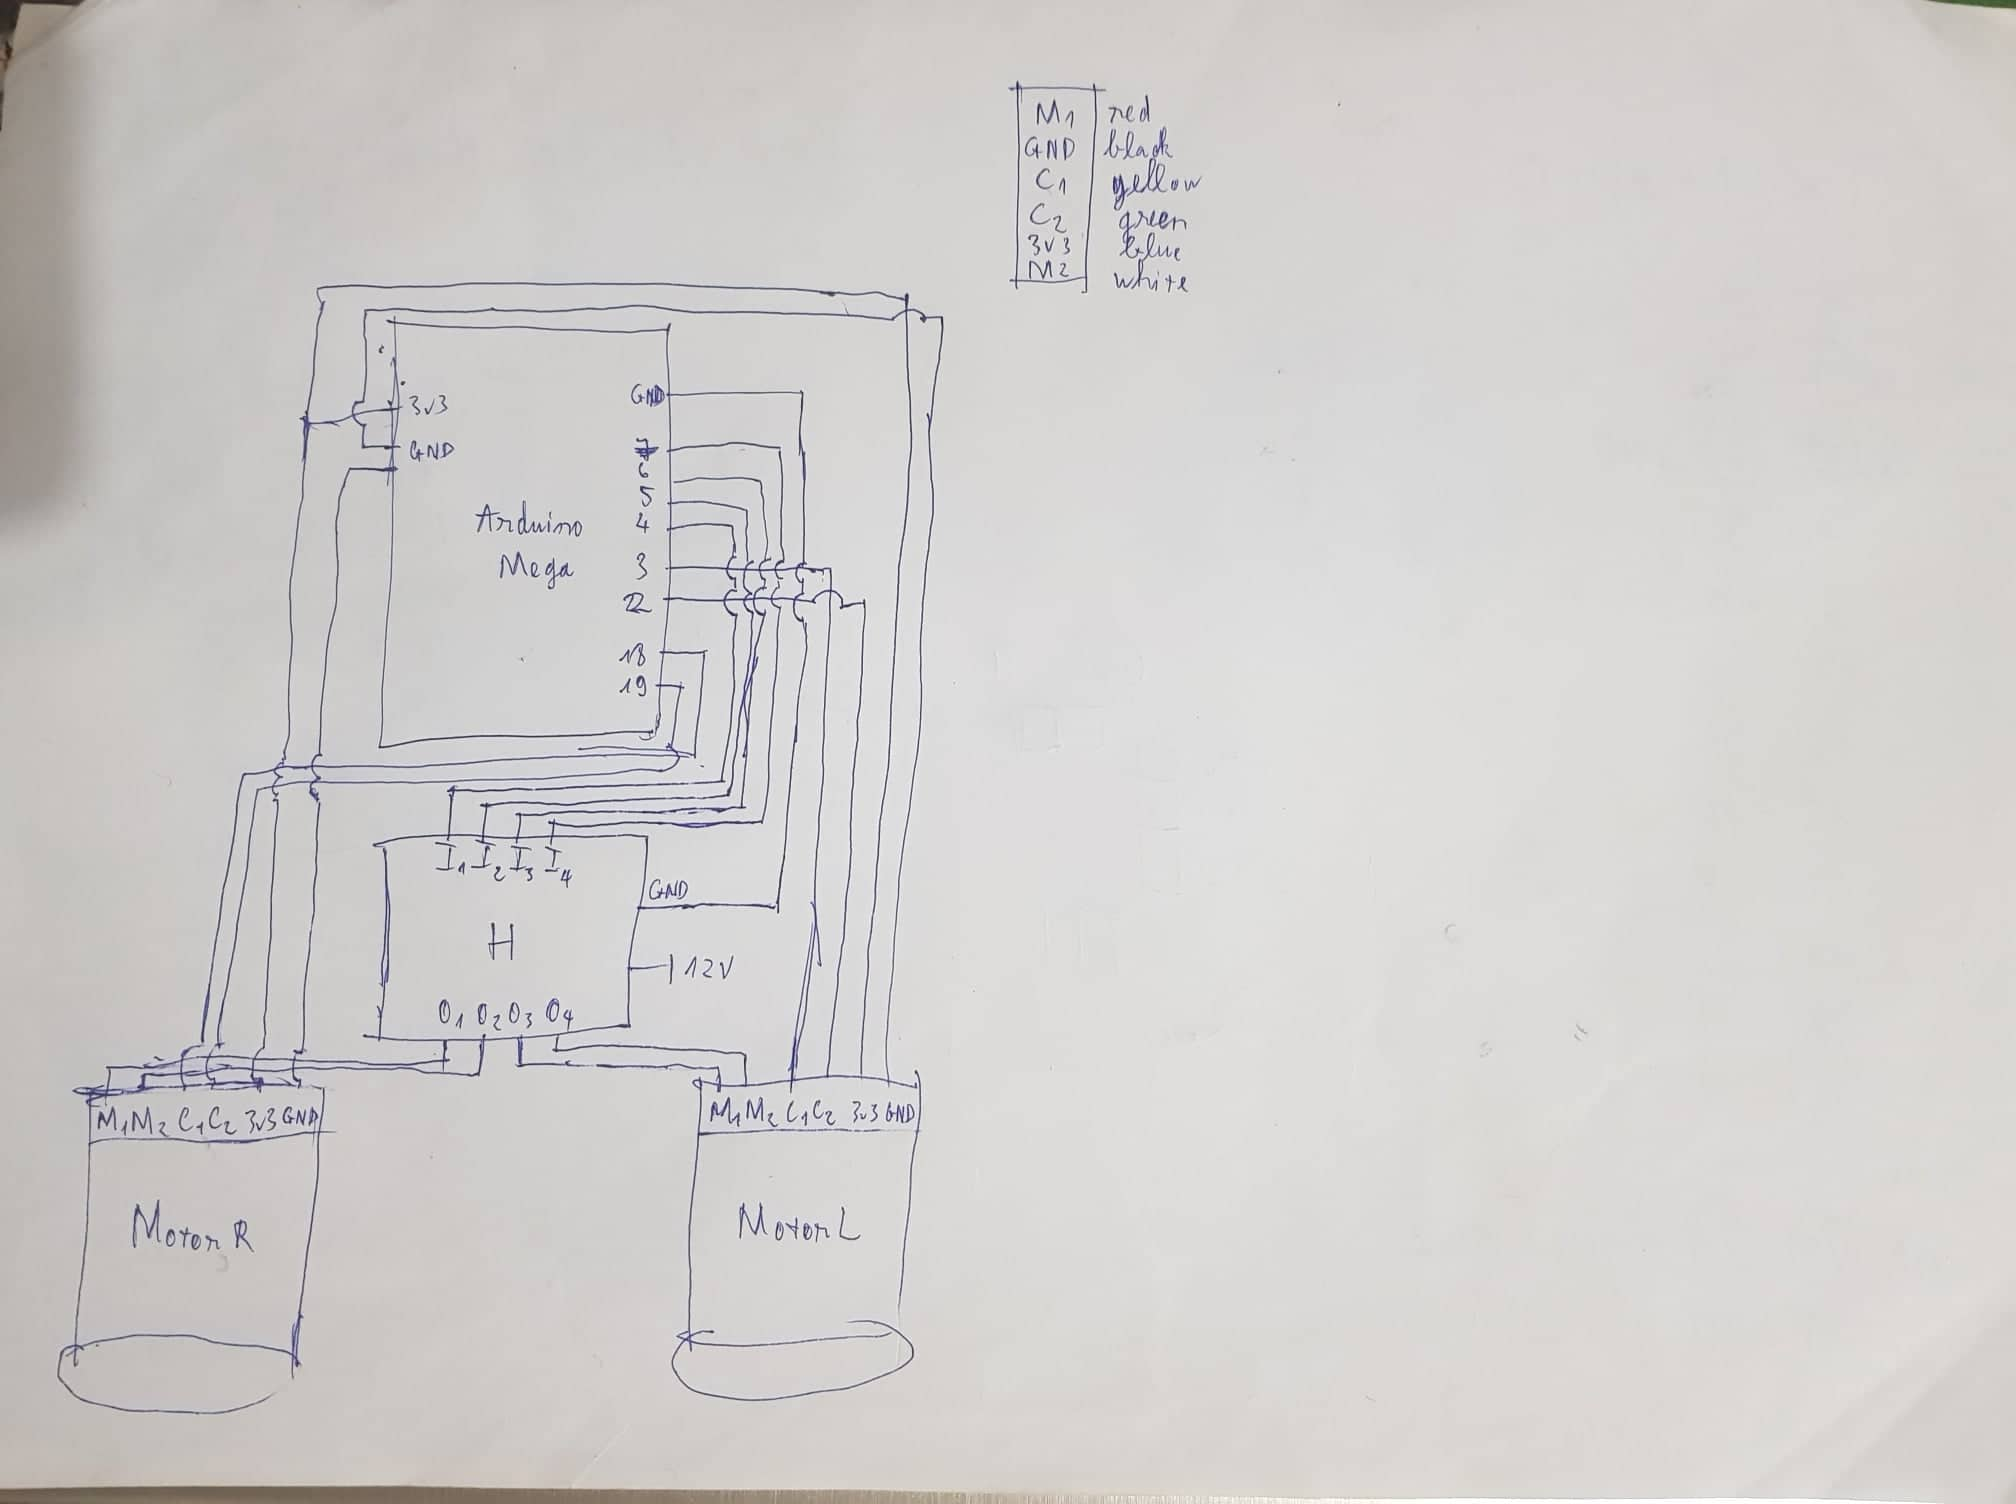 M1 red
GND black
C1 yellow
C2 green
3v3 blue
M2 white
3v3
GND
GND
7
6
5
4
3
2
18
19
Arduino
Mega
I1 I2 I3 I4
GND
H
12V
O1 O2 O3 O4
M1 M2 C1 C2 3v3 GND
Motor R
M1 M2 C1 C2 3v3 GND
Motor L